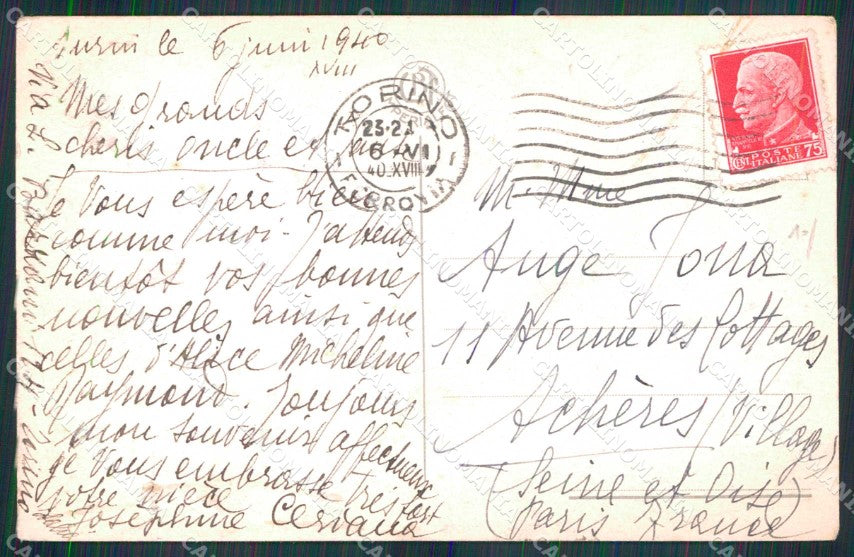 Turin le 6 juin 1940
XVIII
Mes grands
cheris oncle et
Je vous espère bien
comme moi. J'attends
bientôt vos bonnes
nouvelles ainsi que
celles d'Alice Micheline
Raymond. Toujours
mon souvenir affectueux
je vous embrasse tres fort
votre niece
Josephine Ceriana
Via L.
TORINO
23-24
6 VI
40.XVIII
FERROVIA
POSTE
ITALIANE
CENT 75
M. Mme
Ange Jona
11 Avenue des Cottages
Achères (Village)
(Seine et Oise)
(Paris France)
CARTOLINOMANIA